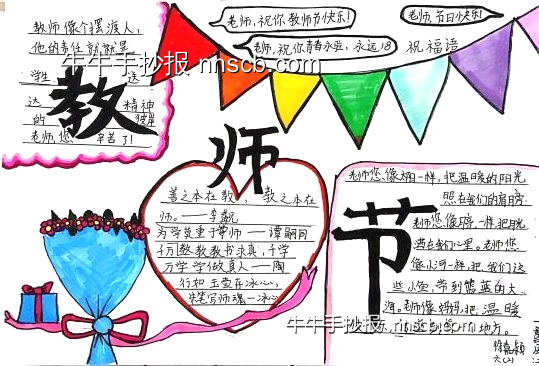 教师像个摆渡人,
他的责任就就是
学生 送
达 精神
的 彼岸
老师,您 辛苦了!
教
师
节
老师,祝你教师节快乐!
老师,节日快乐!
老师,祝你青春永驻,永远18
祝福语
牛牛手抄报 nhscb.com
善之本在教, 教之本在
师。——李觏
为学莫重于尊师——谭嗣同
千万教教教书求真,千学
万学学做真人——陶
行知 玉壶存冰心,
朱笔写师魂——冰心
老师您像太阳一样,把温暖的阳光
照在我们的肩膀
老师您像 一样,把月光
洒在我们心里。老师您
像小河一样,把我们这
些小鱼,带到蓝蓝的大
海。老师像妈妈,把温暖
地方。
牛牛手抄报 nhscb.com